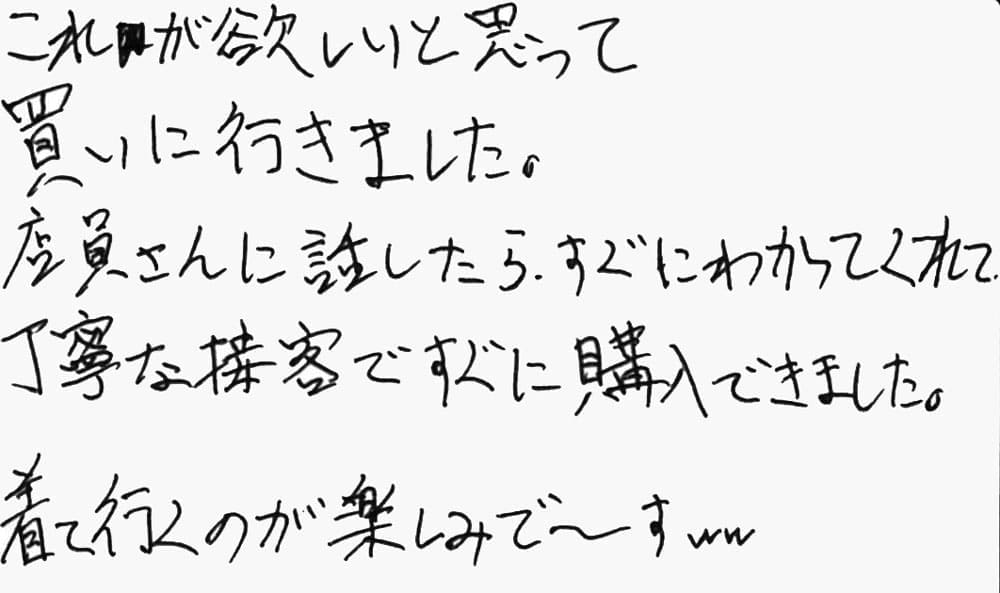 これが欲しいと思って
買いに行きました。
店員さんに話したら、すぐにわかってくれて、
丁寧な接客ですぐに購入できました。
着て行くのが楽しみで〜すww